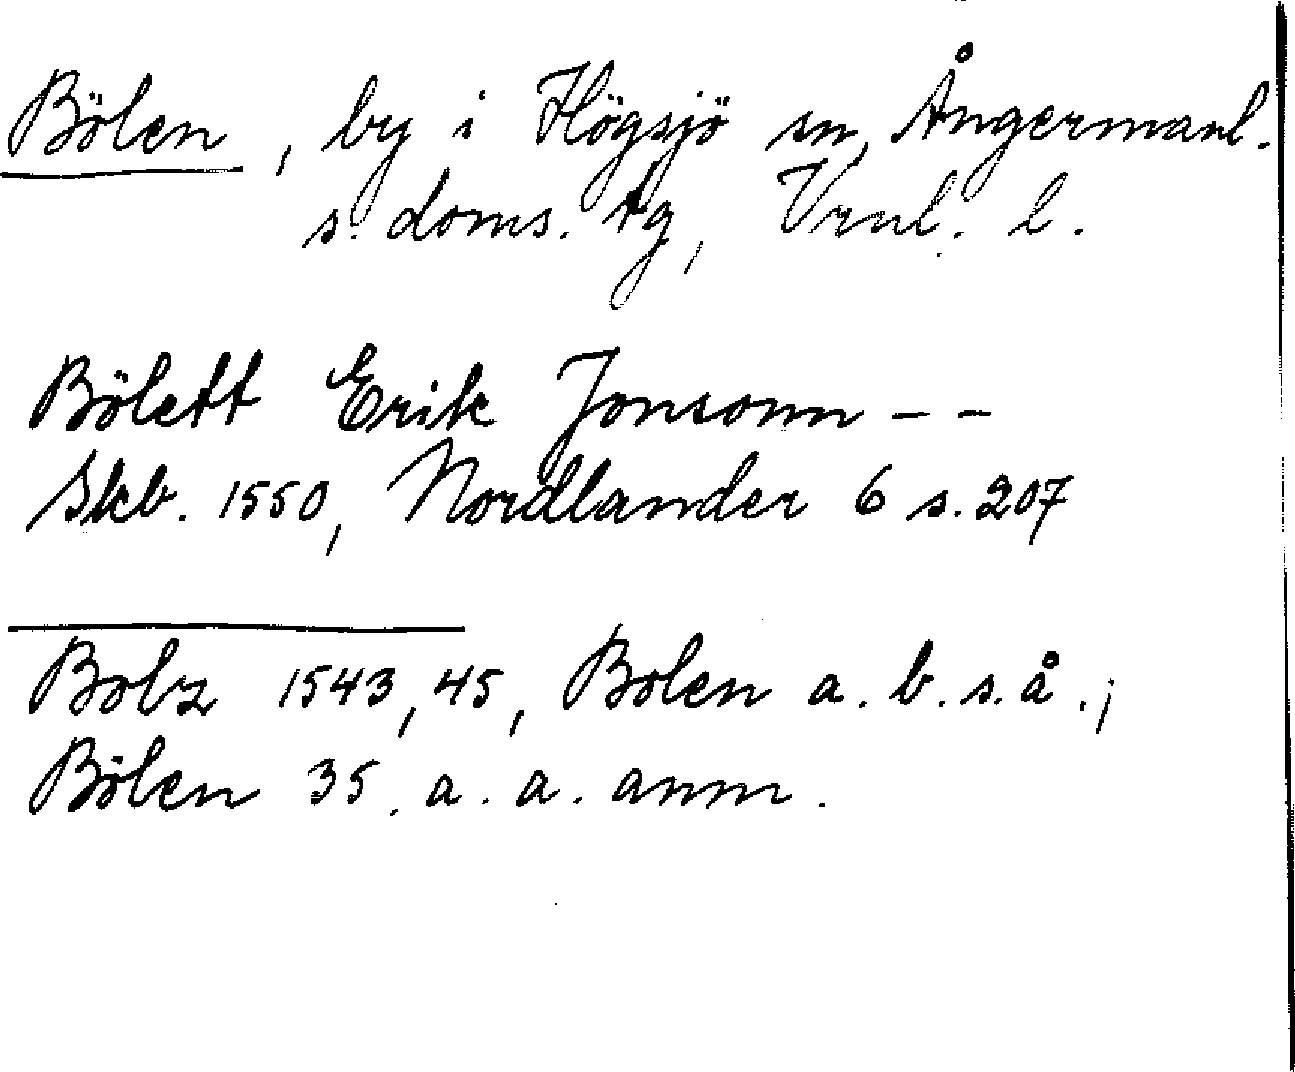 Bölen, by i Högsjö sn, Ångermanl.
s. doms. tg, Vrnl. l.
Bölett Erik Jonsonn - -
Skb. 1550, Nordlander 6 s. 207
Bolz 1543, 45, Bolen a. b. s. å.;
Bölen 35, a. a. anm.